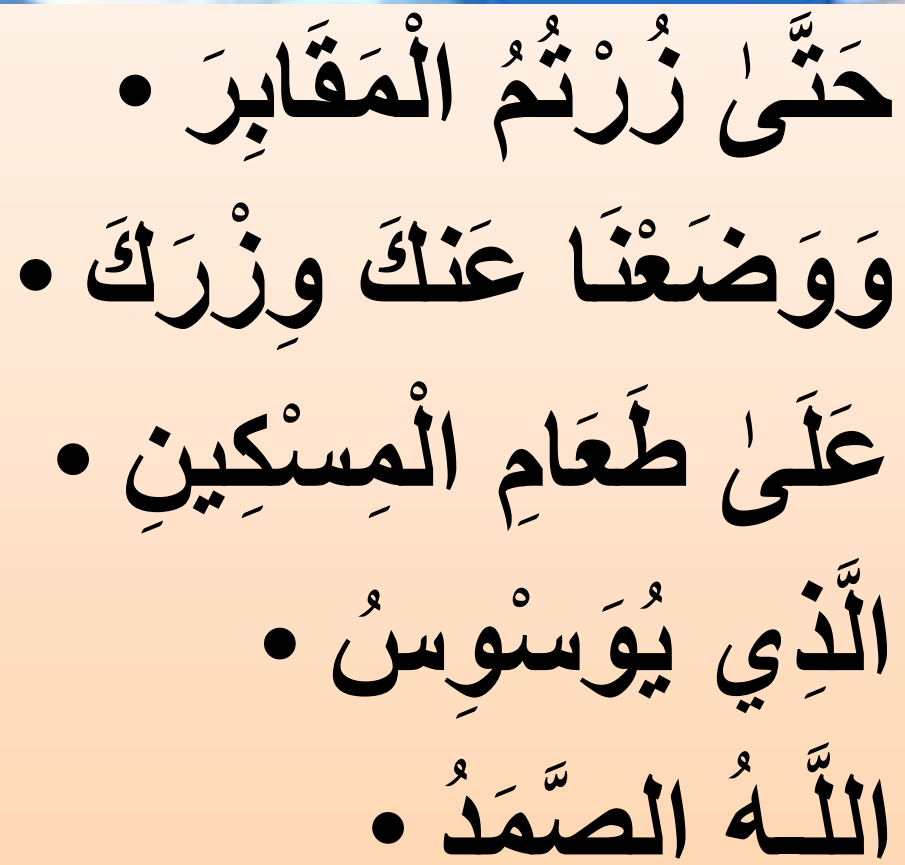 حَتَّىٰ زُرْتُمُ الْمَقَابِرَ •
وَوَضَعْنَا عَنكَ وِزْرَكَ •
عَلَىٰ طَعَامِ الْمِسْكِينِ •
الَّذِي يُوَسْوِسُ •
اللَّـهُ الصَّمَدُ •